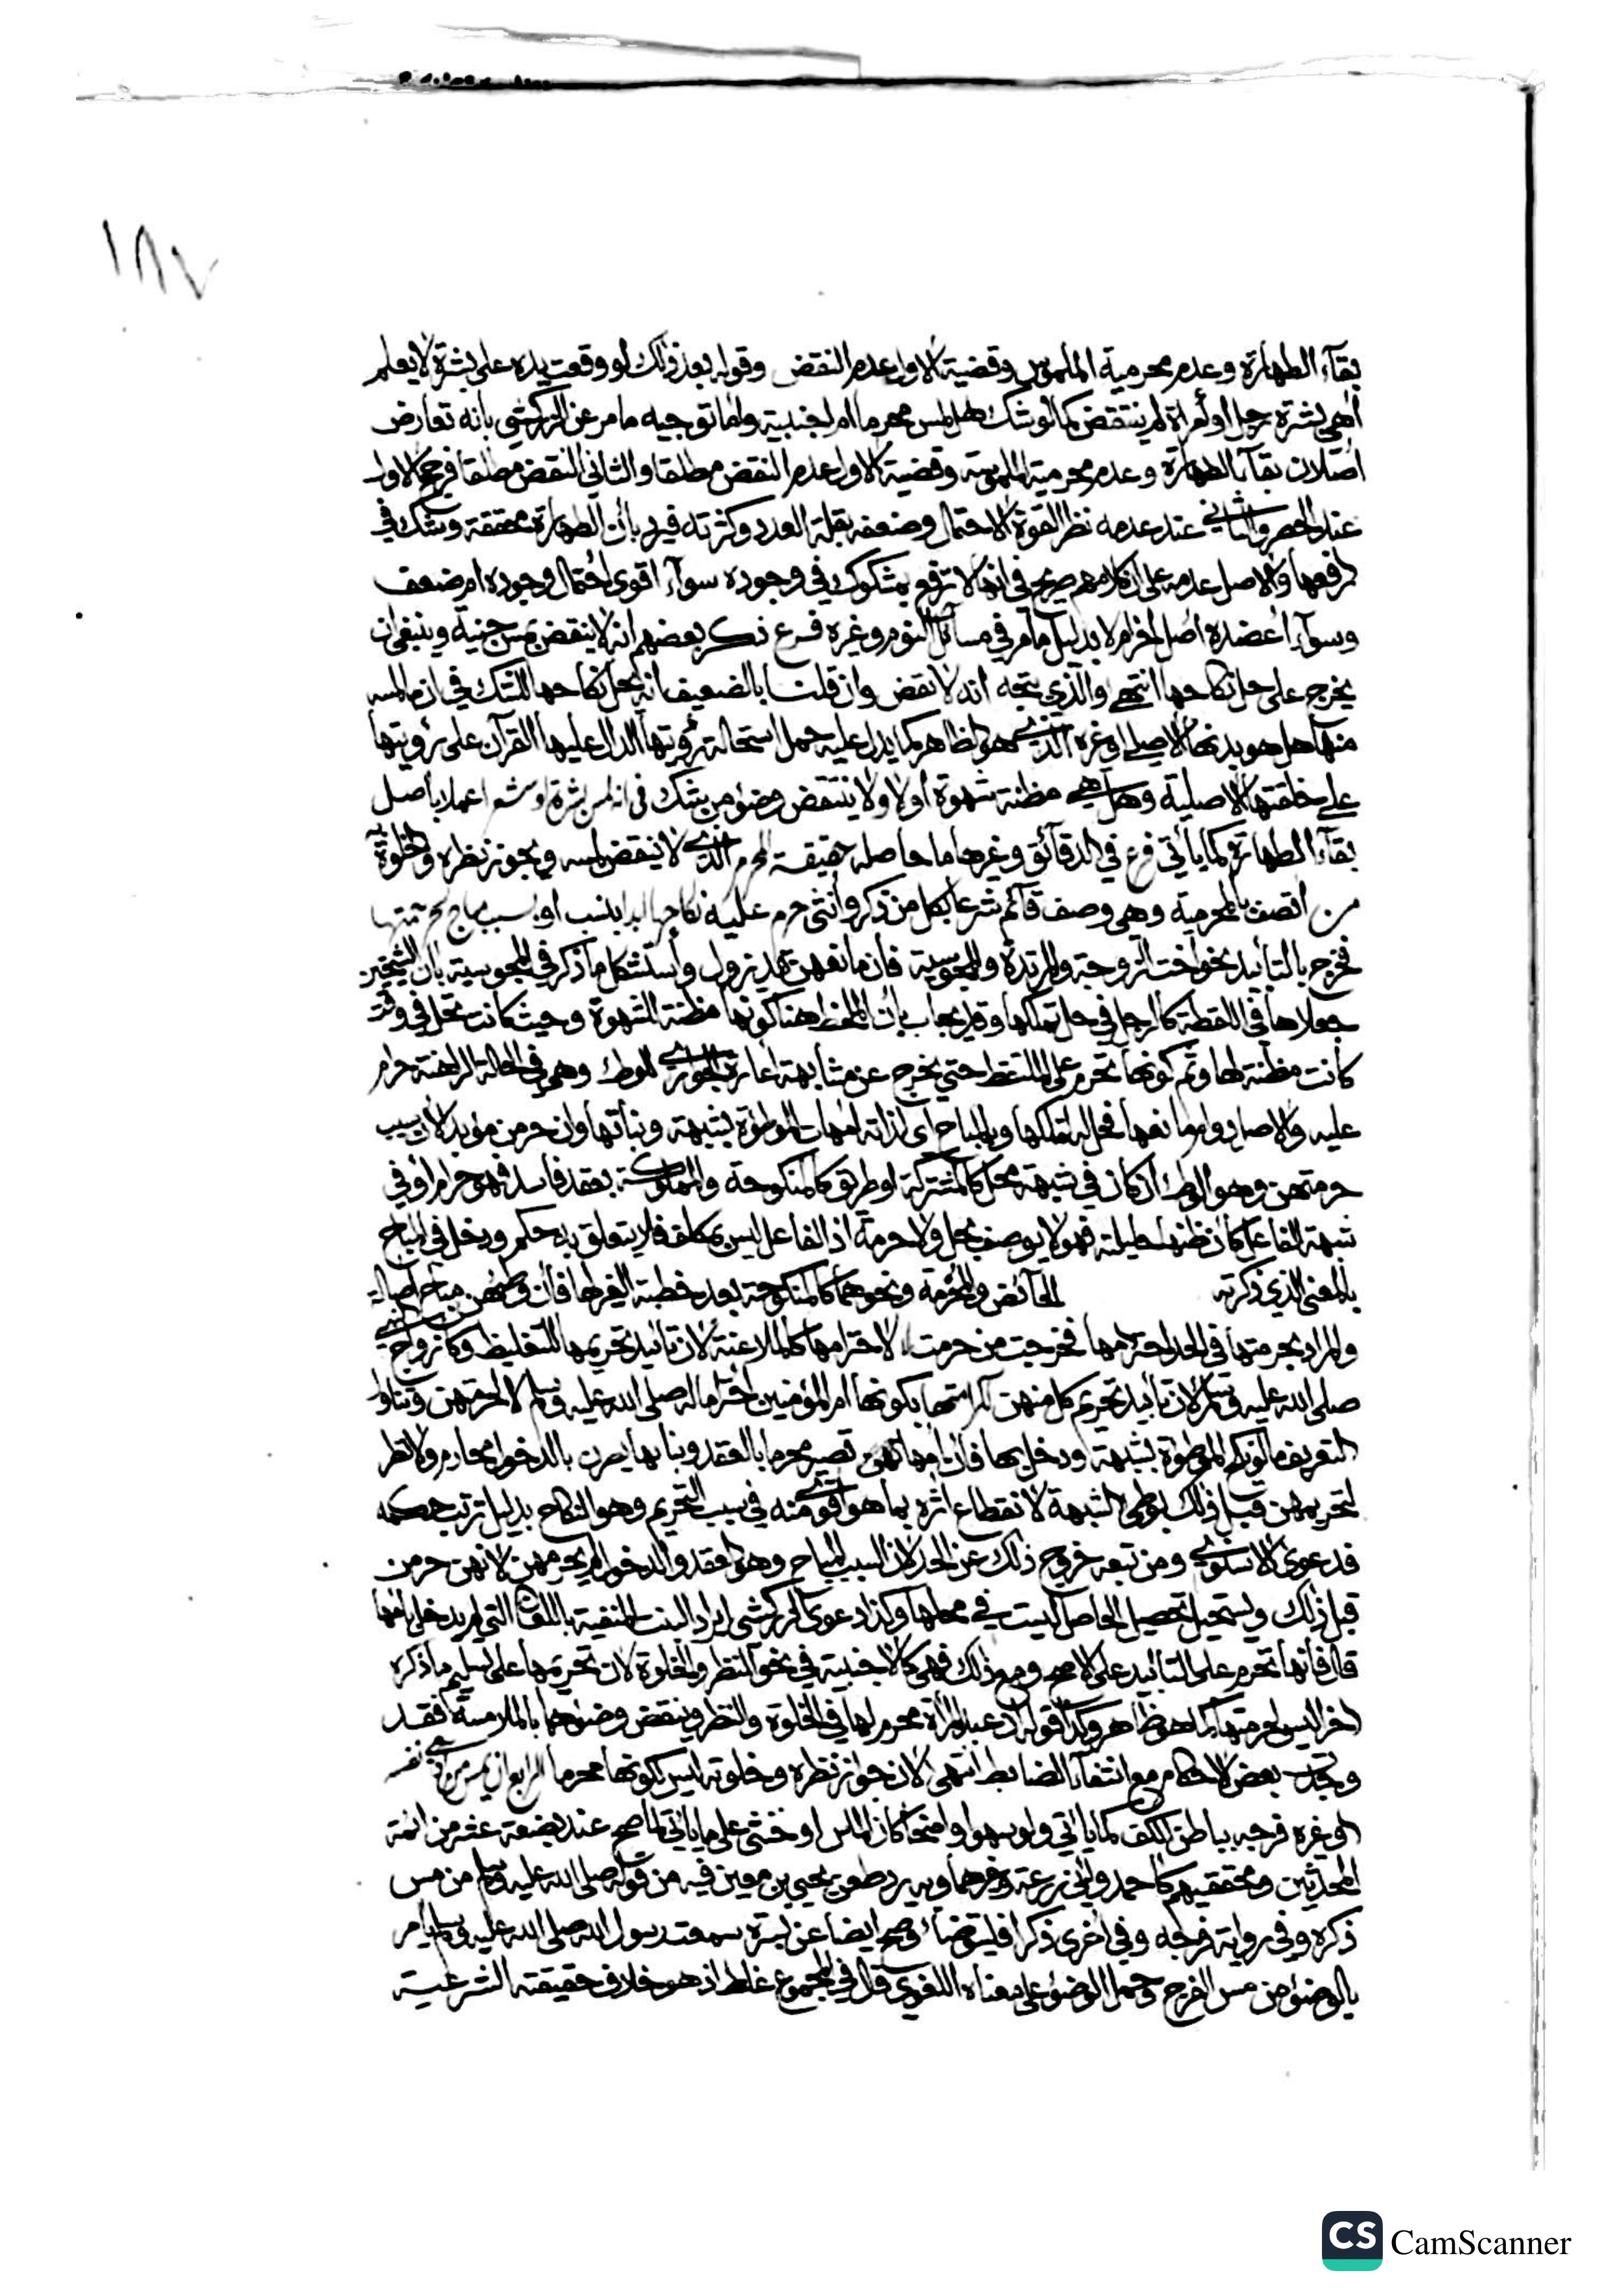 ١٨٧
بقآء الطهارة وعدم محرمية الملموس وقضية الاول عدم النقض وقوله بعد ذلك لو وقعت يده على بشرة لا يعلم
اهي بشرة رجل او امراة لم ينتقض كما لو شك هل لمس محرما ام اجنبية واما توجيه ما مر عن الزركشي بانه تعارض
اصلان بقآء الطهارة وعدم محرمية الملموسة وقضية الاول عدم النقض مطلقا والثاني النقض مطلقا فرجح الاول
عند الحصر والثاني عند عدمه نظر القوة الاحتمال وضعفه بقلة العدد وكثرته فيرد بأن الطهارة محققة وشك في
رفعها والاصل عدمه على ان كلامهم صريح في انها لا ترفع بمشكوك في وجوده سوآء اقوى احتمال وجوده ام ضعف
وسوآء اعضده اصل اخر ام لا بدليل ما مر في مسائل النوم وغيره فرع ذكر بعضهم انه لا ينقض مس جنية وينبغي ان
يخرج على حل نكاحها انتهى والذي يتجه انه لا نقض وان قلنا بالضعيف انه يحل نكاحها للشك في ان ما لمسه
منها هل هو بدنها الاصلي او غيره الذي هو الظاهر كما يدل عليه حمل استحالة رؤيتها الدال عليها القرآن على رؤيتها
على خلقتها الاصلية وهل هي مظنة شهوة أولا ولا ينتقض وضوء من شك في انه لمس بشرة او شعرا عملا بأصل
بقآء الطهارة كما يأتي فرع في الدقائق وغيرها ما حاصله حقيقة المحرم الذي لا ينقض لمسه ويجوز نظره والخلوة به
من اتصف بالمحرمية وهي وصف قآئم شرعا بكل من ذكر وأنثى حرم عليه نكاحها ابدا بنسب او بسبب مباح لحرمتها
فخرج بالتأبيد نحو اخت الزوجة والمرتدة والمجوسية فان مانعهن قد يزول واستشكل ما ذكر في المجوسية بان الشيخين
جعلاها في اللقطة كالرجل في حل تملكها وقد يجاب بأن الملحظ هنا كونها مظنة الشهوة وحيث كانت تحل في وقت
كانت مظنة لها وثم كونها تحرم على الملتقط حتى يخرج عن مشابهة اعارة الجواري للوطء وهي في الحالة الراهنة حرام
عليه والاصل دوام مانعها فحل له تملكها وبالمباح اي لذاته امهات الموطوءة بشبهة وبناتها وان حرمن مؤبدا لان سبب
حرمتهن وهو الوطء ان كان في شبهة محل كالمشتركة او طريق كالمنكوحة والمملوكة بعقد فاسد فهو حرام أو في
شبهة الفاعل كان ظنها حليلته فهو لا يوصف بحل ولا حرمة اذ الفاعل ليس بمكلف فلا يتعلق به حكم ودخل في المباح
بالمعنى الذي ذكرته الحآئض والمحرمة ونحوهما كالمنكوحة بعد خطبة الغير لها فان وطئهن مباح اصالة
والمراد بحرمتها في الحد احترامها فخرجت من حرمت لا لاحترامها كالملاعنة لان تأبيد تحريمها للتغليظ وكأزواجه
صلى الله عليه وسلم لان تأبيد تحريم كل منهن لكرامتها بكونها ام المؤمنين احتراما له صلى الله عليه وسلم لا لحرمتهن وتناول
التعريف ما لو نكح الموطوءة بشبهة ودخل بها فان امهاتهن تصير محرما بالعقد وبناتها يصرن بالدخول محارم ولا نظر
لتحريمهن قبل ذلك بوطئ الشبهة لانقطاع اثره بما هو اقوى منه في سبب التحريم وهو النكاح بدليل ترتب حكمه
فدعوى الاسنوي ومن تبعه خروج ذلك عن الحد لان السبب المباح وهو العقد والدخول لم يحرمهن لانهن حرمن
قبل ذلك ويستحيل تحصيل الحاصل ليست في محلها وكذا دعوى الزركشي ايراد البنت المنفية باللعان التي لم يدخل بامها
قال فأنها تحرم على التأبيد على الاصح ومع ذلك فهي كالاجنبية في نحو النظر والخلوة لان تحريمها على تسليم ما ذكره
اخرا ليس لحرمتها كما هو ظاهر وكذا قوله ان عبد المرأة محرم لها في الخلوة والنظر وينقض وضوءهما بالملامسة فقد
وجدت بعض الاحكام مع انتفآء الضابط انتهى لان جواز نظره وخلوته ليس لكونها محرما الرابع ان يمس من ادمي نفسه
او غيره فرجه بباطن الكف كما يأتي ولو سهوا واضحا كان الماس او خنثى على ما يأتي لما صح عند بضعة عشر من ائمة
المحدثين ومحققيهم كأحمد وابي زرعة وغيرهما وبه يرد طعن يحيى بن معين فيه من قوله صلى الله عليه وسلم من مس
ذكره وفي رواية فرجه وفي اخرى ذكرا فليتوضأ وصح ايضا عن بسرة سمعت رسول الله صلى الله عليه وسلم يأمر
بالوضوء من مس الفرج وحمل الوضوء على معناه اللغوي قال في المجموع غلط اذ هو خلاف حقيقته الشرعية
CS CamScanner